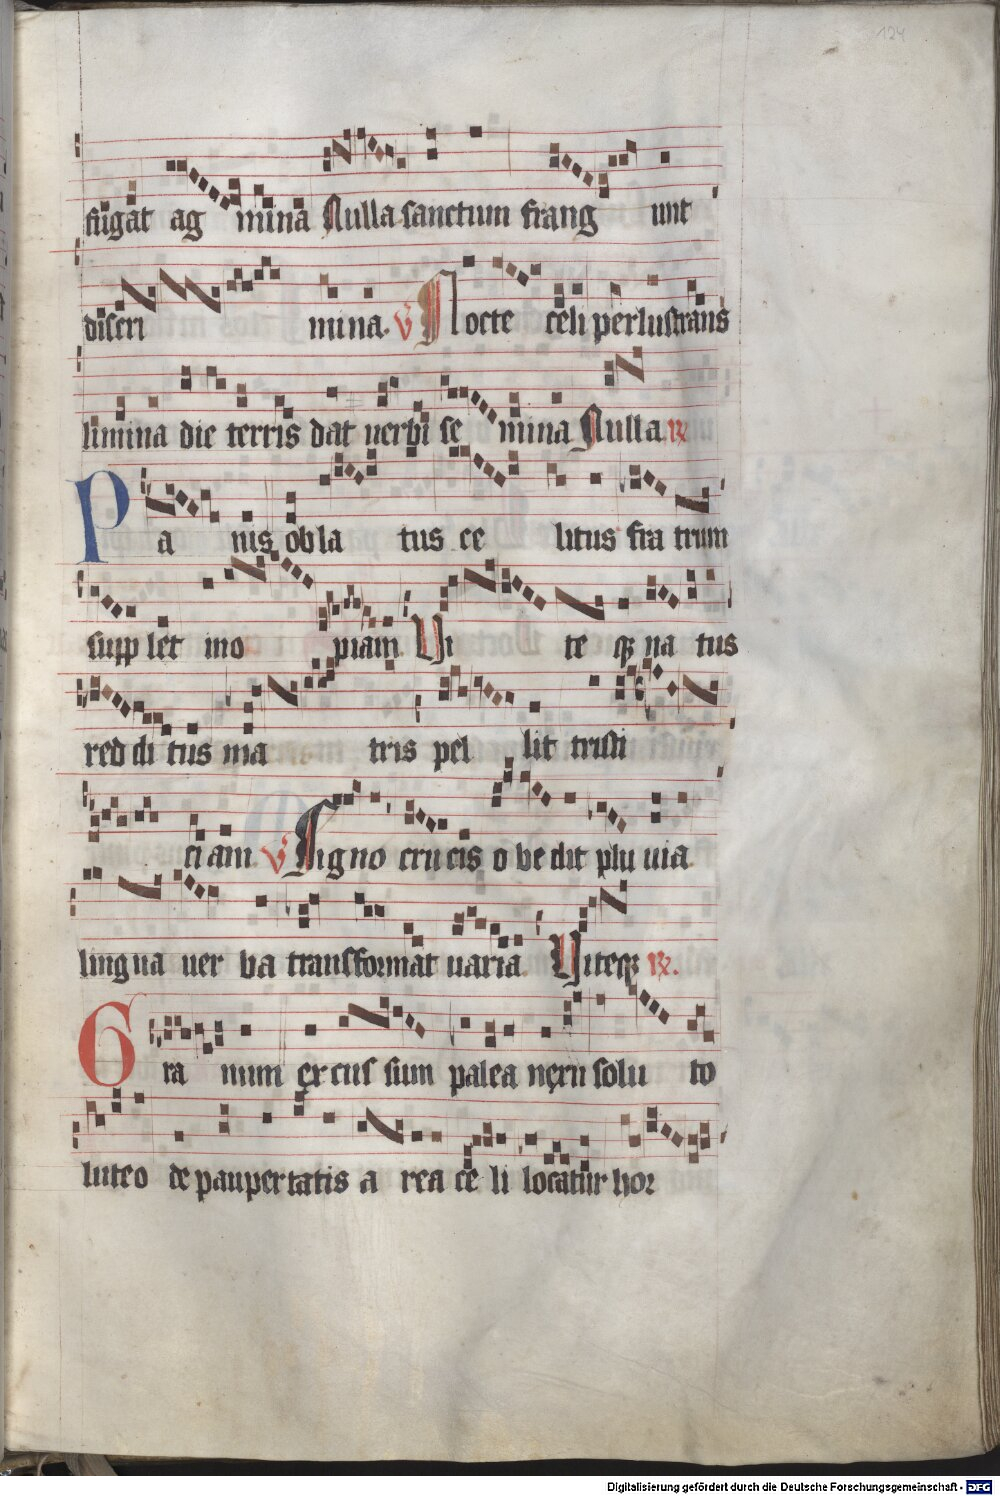 124
fugat ag mina Nulla sanctum frang unt
discri mina. V Nocte celi perlustrans
limina die terris dat verbi se mina Nulla R
Pa nis obla tus ce litus fra trum
supp let ino piam. Vi te qz na tus
red di tus ma tris pel lit tristi
ti am. V Signo crucis o be dit plu uia
lingua uer ba transformat uaria. Viteqz R.
Gra num excus sum palea nexu solu to
luteo de paupertatis a rea ce li locatur hor
Digitalisierung gefördert durch die Deutsche Forschungsgemeinschaft - DFG